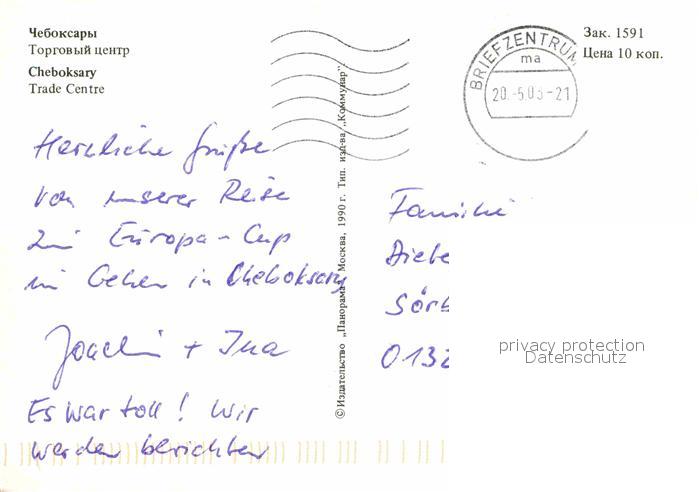 Чебоксары
Торговый центр
Cheboksary
Trade Centre
Herzliche Grüße
von unserer Reise
zum Europa-Cup
im Gehen in Cheboksary
Joachim + Ina
Es war toll! Wir
werden berichten
©Издательство „Панорама". Москва, 1990 г. Тип. изд-ва „Коммунар".
BRIEFZENTRUM
ma
20.-5.03-21
Зак. 1591
Цена 10 коп.
Familie
Diebe
Sörb
0132
privacy protection
Datenschutz